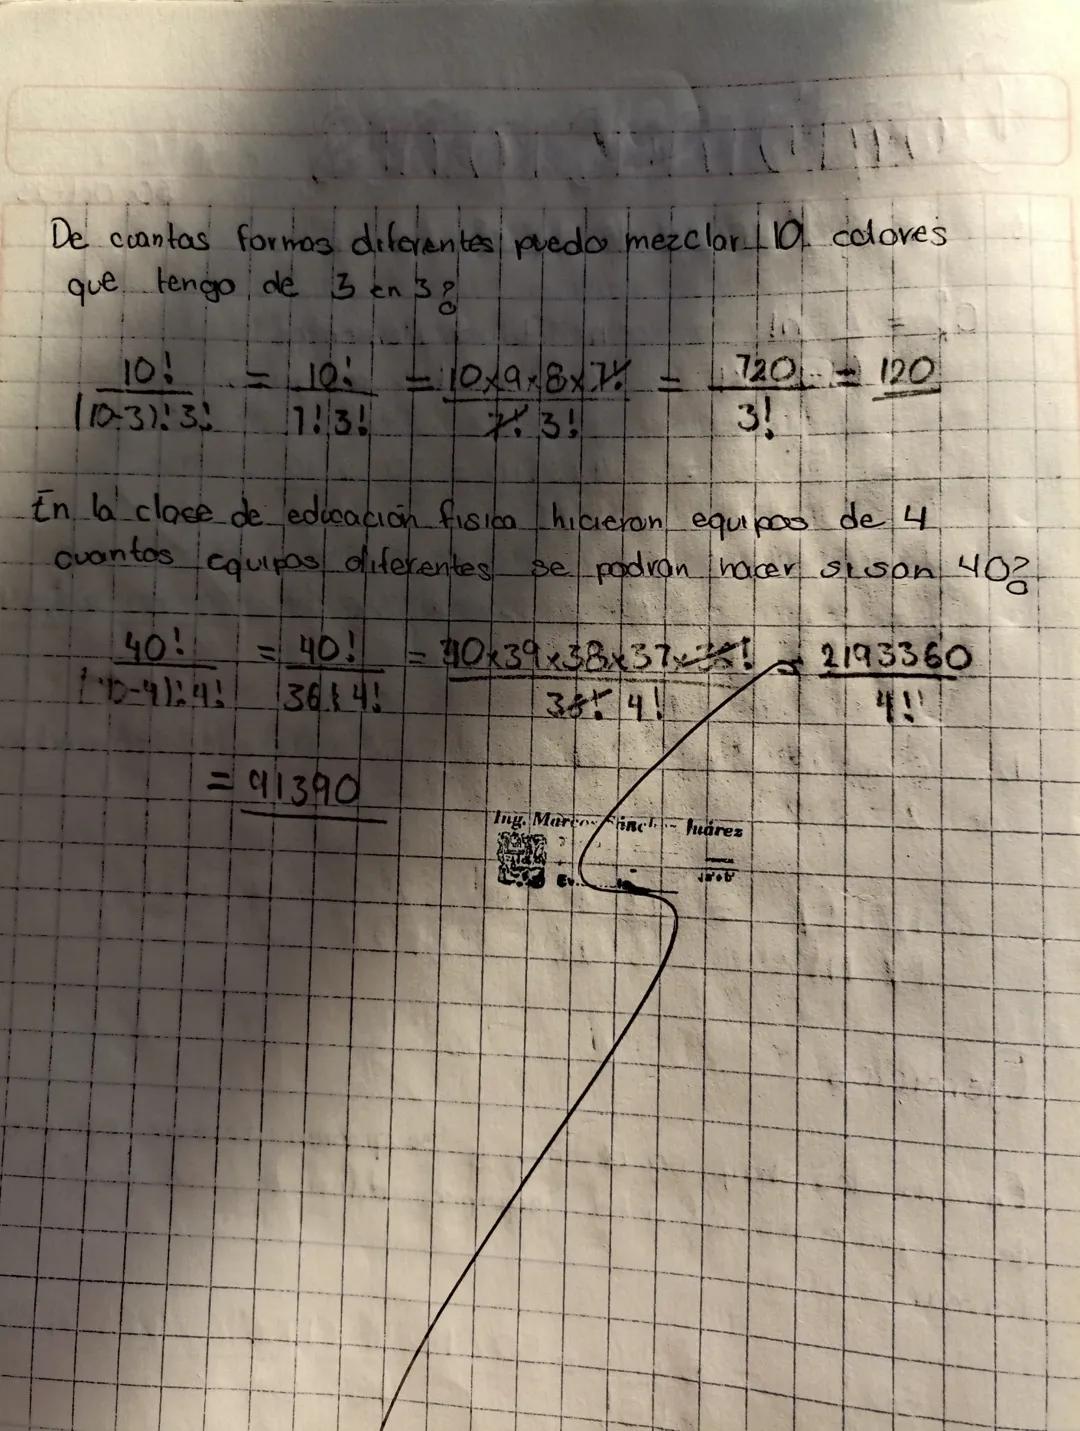 De cuantas formas diferentes puedo mezclar 10 colores
que tengo de 3 en 3?
10! / (10-3)! 3! = 10! / 7! 3! = 10x9x8x7! / 7! 3! = 720 / 3! = 120
En la clase de educación fisica hicieron equipos de 4
cuantos equipos diferentes se podran hacer si son 40?
40! / (40-4)! 4! = 40! / 36! 4! = 40x39x38x37x36! / 36! 4! = 2193360 / 4!
= 91390
Ing. Marcos Juárez